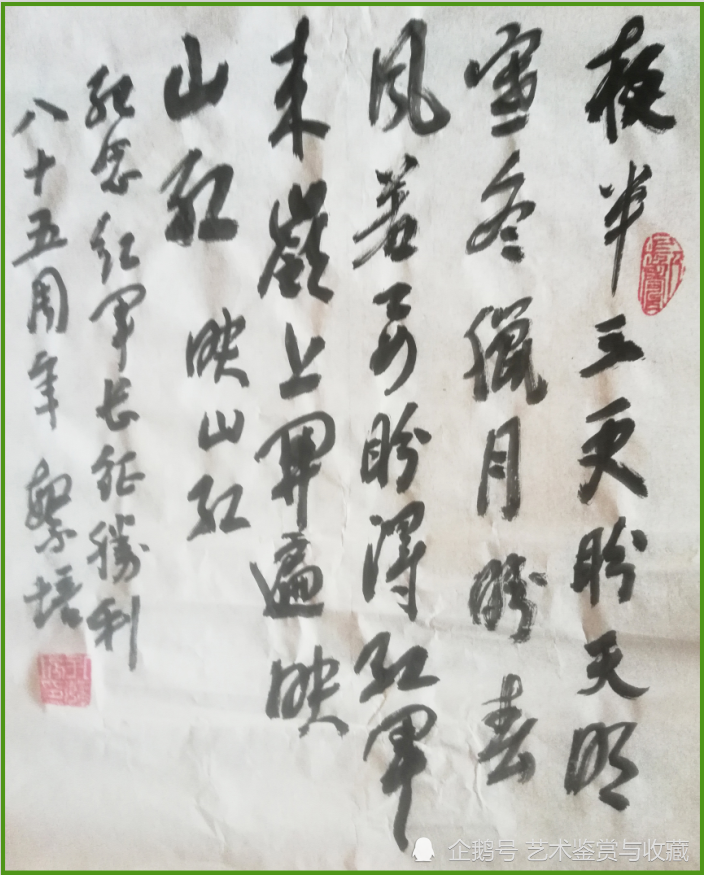 夜半三更盼天明
寒冬臘月盼春
风若要盼得红军
来嶺上開遍映
山红 映山红
纪念红军长征勝利
八十五周年 培
企鹅号 艺术鉴赏与收藏